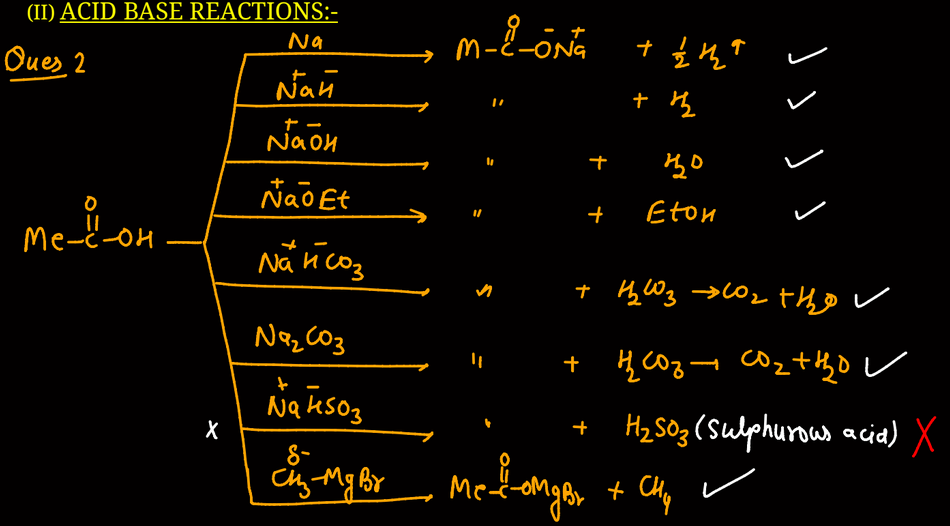 (II) ACID BASE REACTIONS:-
Ques 2
Na M-C(=O)-O⁻Na⁺ + ½ H₂ ↑ ✓
Na⁺H⁻ " + H₂ ✓
Na⁺O⁻H " + H₂O ✓
Na⁺O⁻Et " + EtOH ✓
Me-C(=O)-OH
Na⁺HCO₃⁻ " + H₂CO₃ → CO₂ + H₂O ✓
Na₂CO₃ " + H₂CO₃ → CO₂ + H₂O ✓
x Na⁺HSO₃⁻ " + H₂SO₃ (Sulphurous acid) X
δ⁻
CH₃-MgBr Me-C(=O)-OMgBr + CH₄ ✓